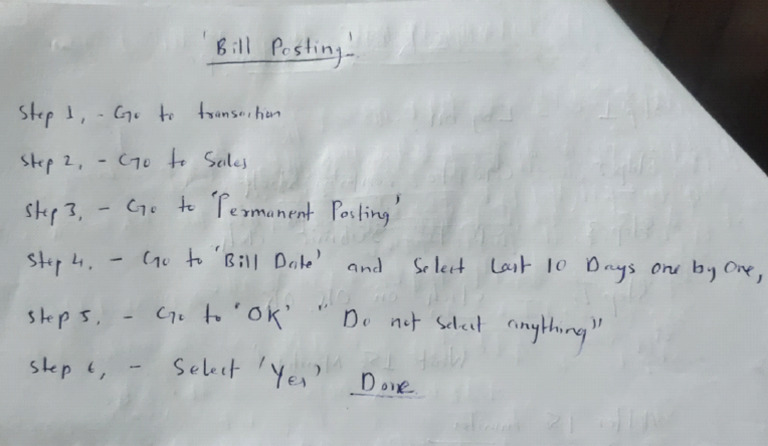 'Bill Posting'
Step 1, - Go to transaction
Step 2, - Go to Sales
Step 3, - Go to 'Permanent Posting'
Step 4. - Go to 'Bill Date' and Select Last 10 Days one by one,
Step 5. - Go to 'OK' "Do not select anything"
Step 6, - Select 'Yes' Done